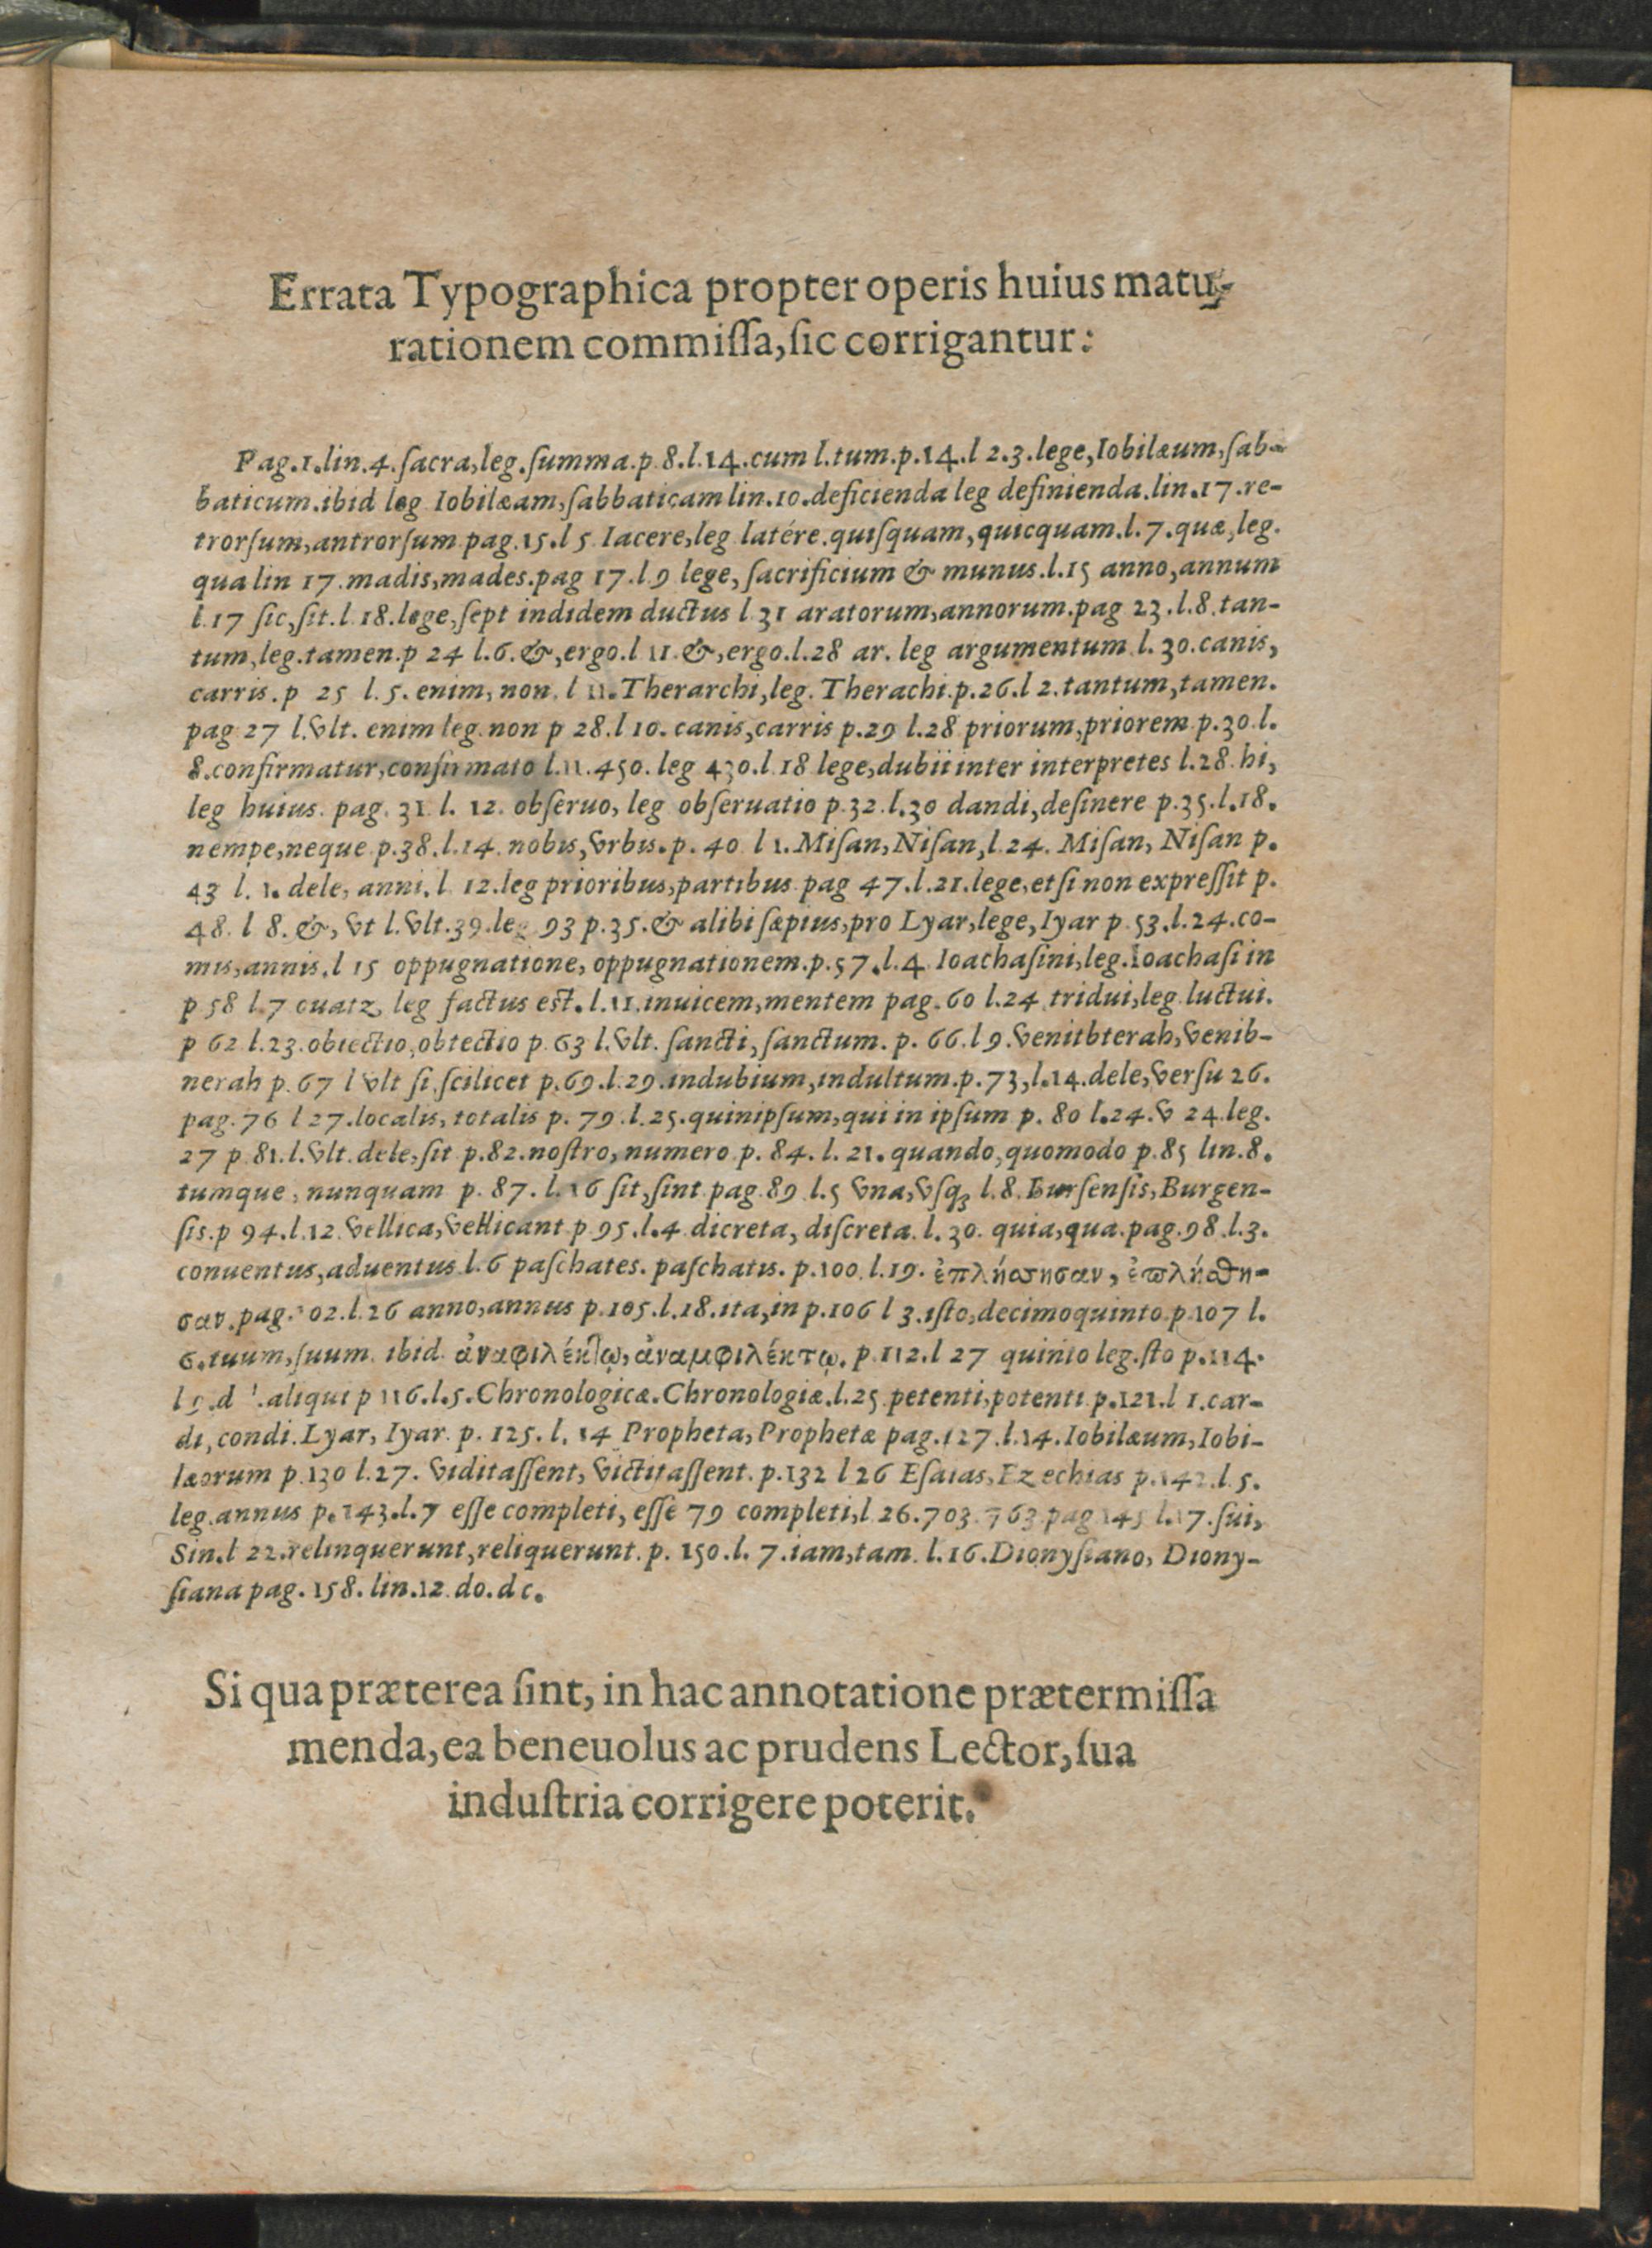 Errata Typographica propter operis huius matu-
rationem commiſſa, ſic corrigantur:
Pag.1.lin.4.ſacra,leg.ſumma.p.8.l.14.cum l.tum.p.14.l 2.3.lege,Iobilæum,ſab-
baticum.ibid leg Iobilæam,ſabbaticam lin.10.deficienda leg definienda.lin.17.re-
trorſum,antrorſum pag.15.l 5 Iacere,leg latére.quiſquam,quicquam.l.7.quæ,leg.
qua lin 17.madis,mades.pag 17.l 9 lege, ſacrificium & munus.l.15 anno,annum
l.17 ſic,ſit.l.18.lege,ſept indidem ductus l 31 aratorum,annorum.pag 23.l.8.tan-
tum,leg.tamen.p 24 l.6.&,ergo.l 11.&,ergo.l.28 ar. leg argumentum l. 30.canis,
carris. p 25 l.5. enim, non. l 11.Therarchi,leg. Therachi.p.26.l 2.tantum,tamen.
pag 27 l.vlt. enim leg non p 28.l 10. canis,carris p.29 l.28 priorum,priorem p.30.l.
8.confirmatur,confirmato l.11.450. leg 430.l.18 lege,dubii inter interpretes l.28.hi,
leg huius. pag. 31 l. 12. obſeruo, leg obſeruatio p.32.l.30 dandi,deſinere p.35.l.18.
nempe,neque p.38.l.14. nobis,vrbis. p. 40 l 1.Miſan,Niſan,l.24. Miſan, Niſan p.
43 l. 1. dele, anni.l 12.leg prioribus,partibus pag 47.l.21.lege,etſi non expreſſit p.
48. l 8. &, vt l.vlt.39.leg 93 p.35.& alibi ſæpius,pro Lyar,lege,Iyar p.53.l.24.co-
mis,annis.l 15 oppugnatione, oppugnationem.p.57.l.4 Ioachaſini,leg.Ioachaſi in
p 58 l.7 leg factus eſt.l.11.inuicem,mentem pag.60 l.24 tridui,leg luctui.
p 62 l.23.obiectio,obtectio p.63 l.vlt. ſancti, ſanctum. p. 66.l 9.venitbterah,venib-
nerah p.67 l vlt ſi ſcilicet p.69.l.29.indubium,indultum.p.73,l.14.dele,verſu 26.
pag.76 l 27.localis, totalis p. 79.l.25.quinipſum,qui in ipſum p. 80 l.24.v 24.leg.
27 p.81.l.vlt.dele,ſit p.82.noſtro, numero p. 84. l. 21. quando,quomodo p.85 lin.8.
tumque, nunquam p. 87. l.16 ſit,ſint pag.89 l.5 vna,vſqꝫ l.8.Burſenſis,Burgen-
ſis.p 94.l.12 vellica,vellicant p.95.l.4 dicreta, diſcreta. l.30. quia,qua.pag.98.l.3.
conuentus,aduentus l.6 paſchates. paſchatis. p.100.l.19. ἐπλήσησαν, ἐπλήσθη-
σαν.pag. 02.l.26 anno,annus p.105.l.18.ita,in p.106 l 3.iſto,decimoquinto p.107 l.
6.tuum,ſuum. ibid. ἀναφιλέκτῳ, ἀναμφιλέκτῳ. p.112.l 27 quinio leg.ſto p.114.
aliqui p 116.l.5.Chronologicæ.Chronologiæ.l.25 petenti,potenti p.121.l 1.car-
di, condi.Lyar, Iyar. p. 125. l. 14 Propheta, Prophetæ pag.127.l.14.Iobilæum,Iobi-
læorum p.130 l.27. viditaſſent, victitaſſent. p.132 l 26 Eſaias,Ezechias p.142.l.5.
leg.annus p.143.l.7 eſſe completi, eſſe 79 completi,l 26.703.763 pag 145 l.17.ſui,
Sin.l 22.relinquerunt,reliquerunt. p. 150.l. 7.iam,tam. l.16.Dionyſiano, Diony-
ſiana pag. 158. lin.12.do.dc.
Si qua præterea ſint, in hac annotatione prætermiſſa
menda, ea beneuolus ac prudens Lector, ſua
induſtria corrigere poterit.